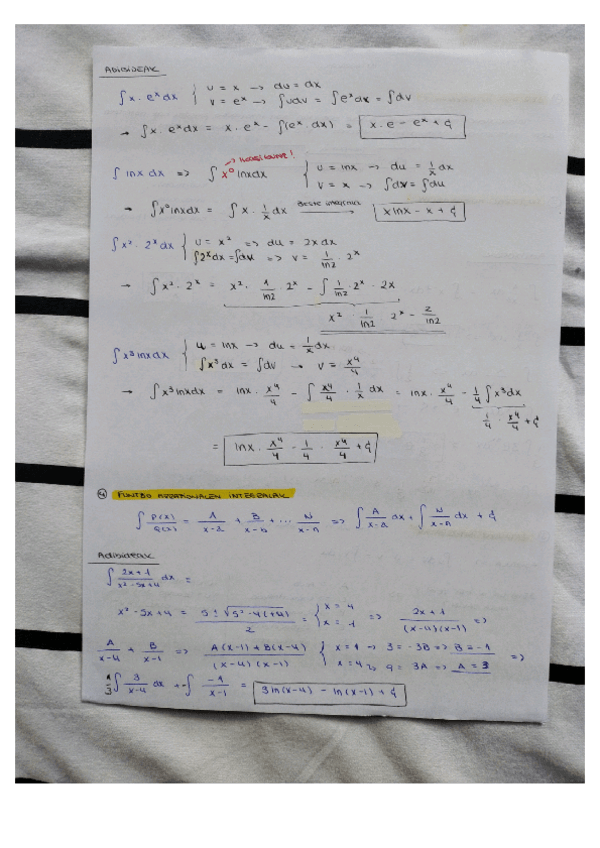 ADIBIDEAK
∫x·eˣdx { u = x → du = dx
v = eˣ → ∫udv = ∫eˣdx = ∫dv
→ ∫x·eˣdx = x·eˣ - ∫(eˣ·dx) = x·e - eˣ + C
∫lnxdx => ∫x⁰lnxdx { u = lnx → du = 1/x dx
v = x → ∫dx = ∫du
→ ∫x⁰lnxdx = ∫x·1/x dx → xlnx - x + C
∫x²·2ˣdx { u = x² => du = 2xdx
∫2ˣdx = ∫du => v = 1/ln2 · 2ˣ
→ ∫x²·2ˣ = x²·1/ln2·2ˣ - ∫1/ln2·2ˣ·2x
x²·1/ln2·2ˣ - 2/ln2
∫x³lnxdx { u = lnx → du = 1/x dx
∫x³dx = ∫dv → v = x⁴/4
→ ∫x³lnxdx = lnx·x⁴/4 - ∫x⁴/4·1/x dx = lnx·x⁴/4 - 1/4∫x³dx
1/4·x⁴/4 + C
= lnx·x⁴/4 - 1/4·x⁴/4 + C
④ FUNTZIO ARRAZIONALEN INTEGRALAK
∫P(x)/Q(x) = A/x-a + B/x-b + ... N/x-n => ∫A/x-a dx + ∫N/x-n dx + C
Adibideak
∫2x+1/x²-5x+4 dx =
x²-5x+4 = 5±√5²-4(+4)/2 = { x = 4 x = 1 => 2x+1/(x-4)(x-1) =>
A/x-4 + B/x-1 => A(x-1)+B(x-4)/(x-4)(x-1) { x=1 → 3 = -3B => B = -1
x=4 → 9 = 3A => A = 3 =>
∫3/x-4 dx + ∫-1/x-1 = 3ln(x-4) - ln(x-1) + C